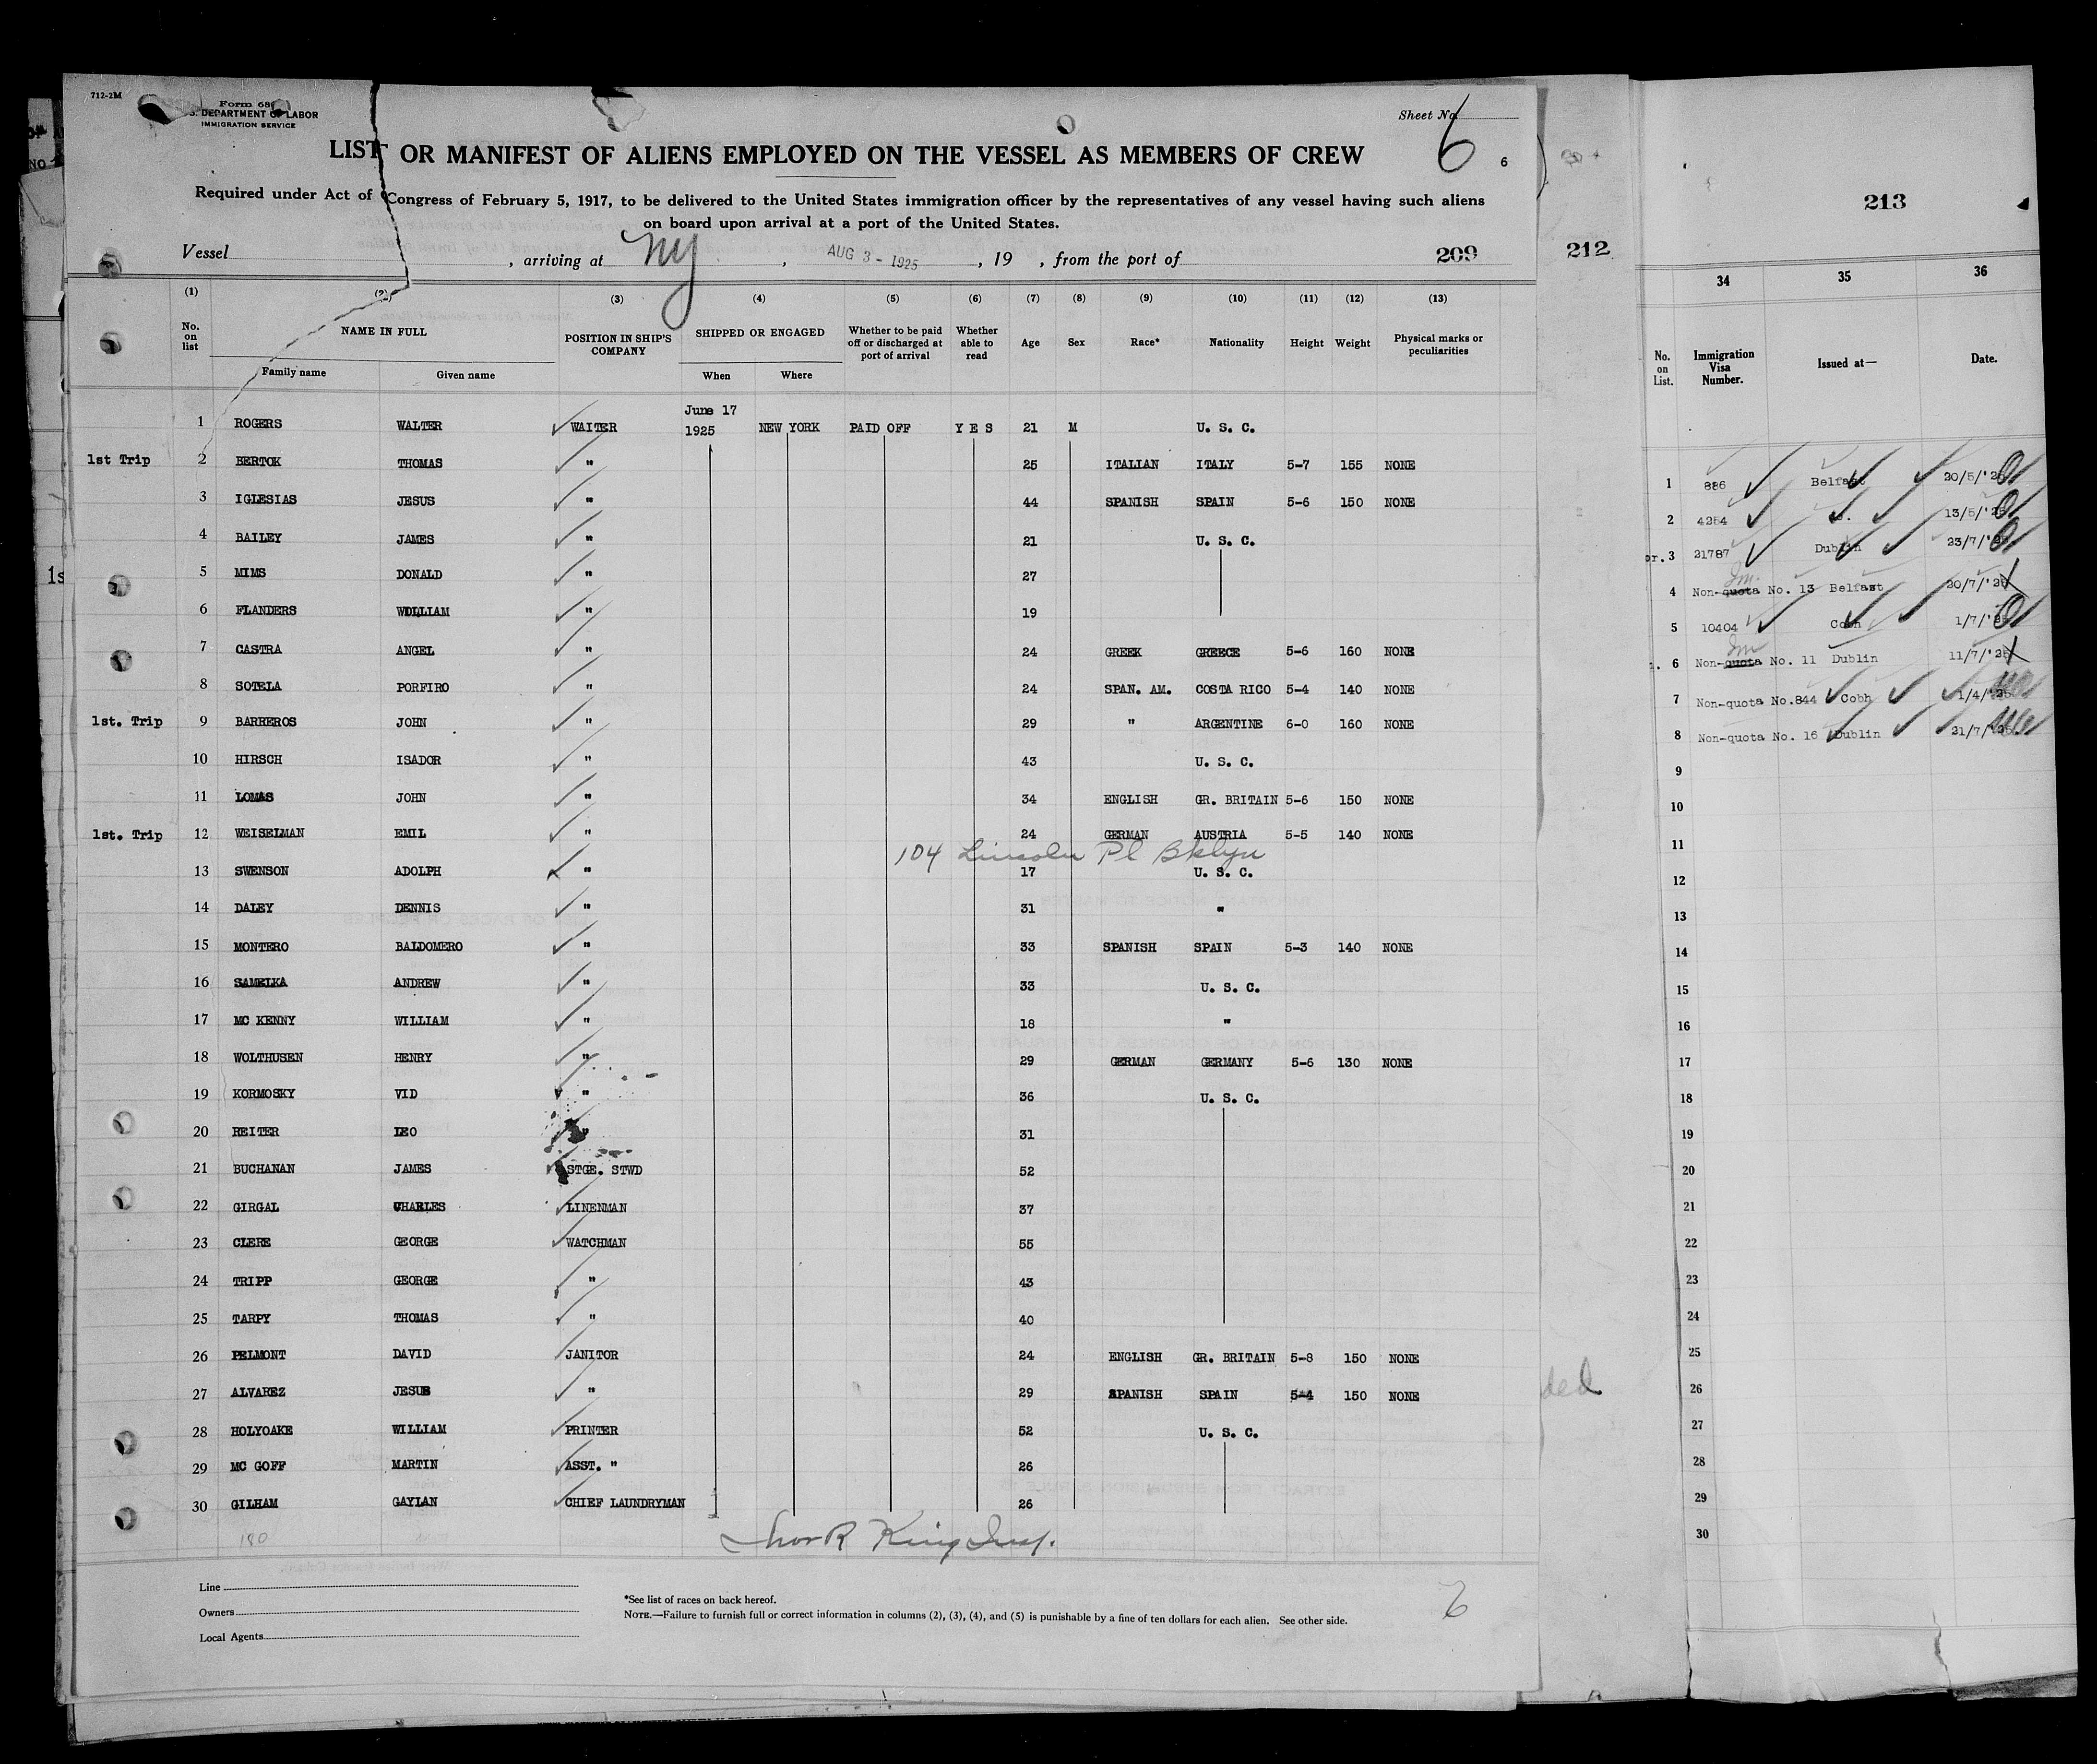 712-2M
Form 68
S. DEPARTMENT OF LABOR
IMMIGRATION SERVICE
Sheet No. 6
LIST OR MANIFEST OF ALIENS EMPLOYED ON THE VESSEL AS MEMBERS OF CREW
6
Required under Act of Congress of February 5, 1917, to be delivered to the United States immigration officer by the representatives of any vessel having such aliens
on board upon arrival at a port of the United States.
Vessel , arriving at NY , AUG 3 - 1925 , 19 , from the port of 209
(1) (2) (3) (4) (5) (6) (7) (8) (9) (10) (11) (12) (13)
No. on list NAME IN FULL POSITION IN SHIP'S COMPANY SHIPPED OR ENGAGED Whether to be paid off or discharged at port of arrival Whether able to read Age Sex Race* Nationality Height Weight Physical marks or peculiarities
Family name Given name When Where
1 ROGERS WALTER WAITER June 17 1925 NEW YORK PAID OFF YES 21 M U. S. C.
1st Trip 2 BERTOK THOMAS " 25 ITALIAN ITALY 5-7 155 NONE
3 IGLESIAS JESUS " 44 SPANISH SPAIN 5-6 150 NONE
4 BAILEY JAMES " 21 U. S. C.
5 MIMS DONALD " 27
6 FLANDERS WILLIAM " 19
7 CASTRA ANGEL " 24 GREEK GREECE 5-6 160 NONE
8 SOTELA PORFIRO " 24 SPAN. AM. COSTA RICO 5-4 140 NONE
1st. Trip 9 BARREROS JOHN " 29 " ARGENTINE 6-0 160 NONE
10 HIRSCH ISADOR " 43 U. S. C.
11 LOMAS JOHN " 34 ENGLISH GR. BRITAIN 5-6 150 NONE
1st. Trip 12 WEISELMAN EMIL " 24 GERMAN AUSTRIA 5-5 140 NONE
104 Lincoln Pl Bklyn
13 SWENSON ADOLPH " 17 U. S. C.
14 DALEY DENNIS " 31 "
15 MONTERO BALDOMERO " 33 SPANISH SPAIN 5-3 140 NONE
16 SAMELKA ANDREW " 33 U. S. C.
17 MC KENNY WILLIAM " 18 "
18 WOLTHUSEN HENRY " 29 GERMAN GERMANY 5-6 130 NONE
19 KORMOSKY VID " 36 U. S. C.
20 REITER LEO " 31
21 BUCHANAN JAMES STGE. STWD 52
22 GIRGAL CHARLES LINENMAN 37
23 CLERE GEORGE WATCHMAN 55
24 TRIPP GEORGE " 43
25 TARPY THOMAS " 40
26 PELMONT DAVID JANITOR 24 ENGLISH GR. BRITAIN 5-8 150 NONE
27 ALVAREZ JESUS " 29 SPANISH SPAIN 5-4 150 NONE
28 HOLYOAKE WILLIAM PRINTER 52 U. S. C.
29 MC GOFF MARTIN ASST. " 26
30 GILHAM GAYLAN CHIEF LAUNDRYMAN 26
190
King Insp.
Line
Owners
Local Agents
*See list of races on back hereof.
NOTE.—Failure to furnish full or correct information in columns (2), (3), (4), and (5) is punishable by a fine of ten dollars for each alien. See other side.
6
212
ded
213
34 35 36
No. on List. Immigration Visa Number. Issued at— Date.
1 886 Belfast 20/5/'25
2 4254 13/5/'25
3 21787 Dublin 23/7/'25
4 Non-quota No. 13 Belfast 20/7/'25
5 10404 Cobh 1/7/'25
6 Non-quota No. 11 Dublin 11/7/'25
7 Non-quota No.844 Cobh 1/4/'25
8 Non-quota No. 16 Dublin 21/7/'25
9
10
11
12
13
14
15
16
17
18
19
20
21
22
23
24
25
26
27
28
29
30